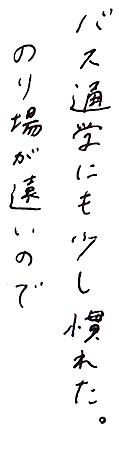 バス通学にも少し慣れた。
のり場が遠いので